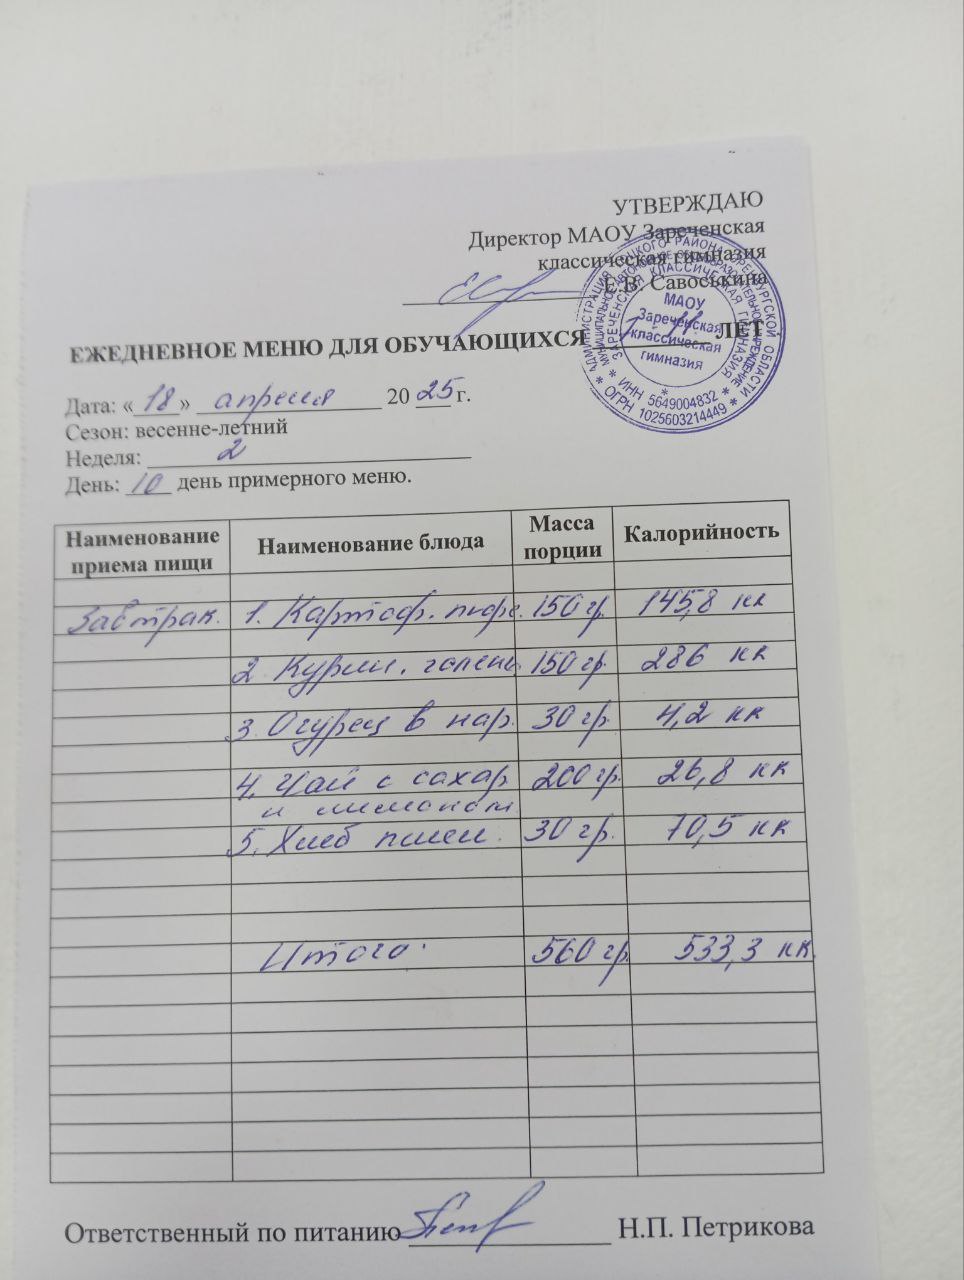 УТВЕРЖДАЮ
Директор МАОУ Зареченская
классическая гимназия
Е.В. Савоськина
ЕЖЕДНЕВНОЕ МЕНЮ ДЛЯ ОБУЧАЮЩИХСЯ ЛЕТ
МАОУ
Зареченская
классическая
гимназия
ИНН 5649004832
ОГРН 1025603214449
Дата: «18» апреля 2025 г.
Сезон: весенне-летний
Неделя: 2
День: 10 день примерного меню.
Наименование приема пищи Наименование блюда Масса порции Калорийность
Завтрак. 1. Картоф. пюре. 150 гр. 145,8 кк
2. Курин. голень 150 гр. 286 кк
3. Огурец в нар. 30 гр. 4,2 кк
4. Чай с сахар 200 гр. 26,8 кк
и лимоном
5. Хлеб пшен. 30 гр. 70,5 кк
Итого. 560 гр. 533,3 кк.
Ответственный по питанию Н.П. Петрикова